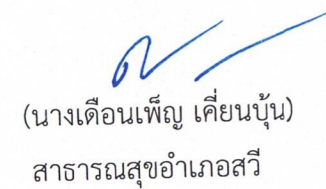 (นางเดือนเพ็ญ เคี่ยนบุ้น)
สาธารณสุขอำเภอสวี